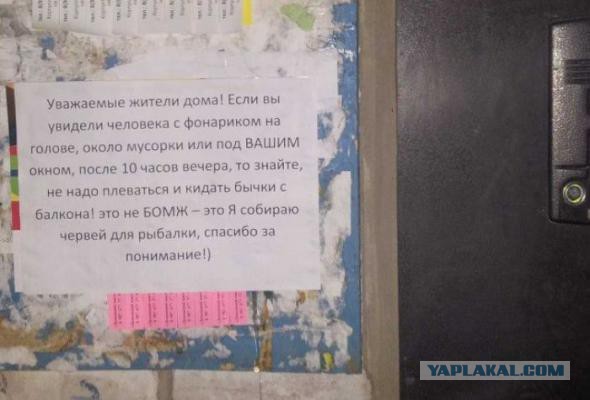 Уважаемые жители дома! Если вы
увидели человека с фонариком на
голове, около мусорки или под ВАШИМ
окном, после 10 часов вечера, то знайте,
не надо плеваться и кидать бычки с
балкона! это не БОМЖ – это Я собираю
червей для рыбалки, спасибо за
понимание!)
YAPLAKAL.COM